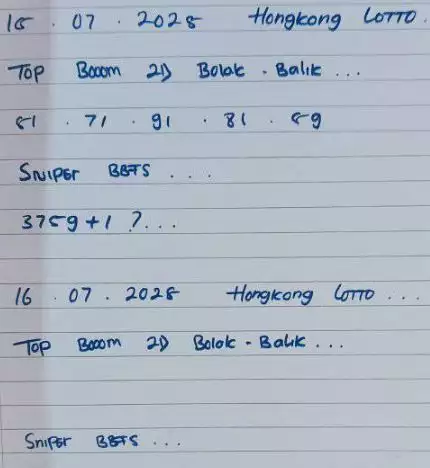 15 . 07 . 2025 Hongkong LOTTO.
TOP Booom 2D Bolak - Balik ...
51 . 71 . 91 . 81 . 59
Sniper BBFS ...
3759+1 ?...
16 . 07 . 2025 Hongkong LOTTO ...
TOP Booom 2D Bolak - Balik ...
Sniper BBFS ...